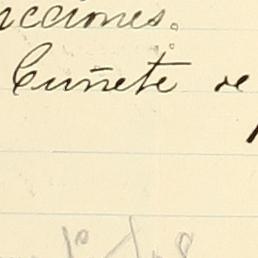 icciones.
Cuñete de